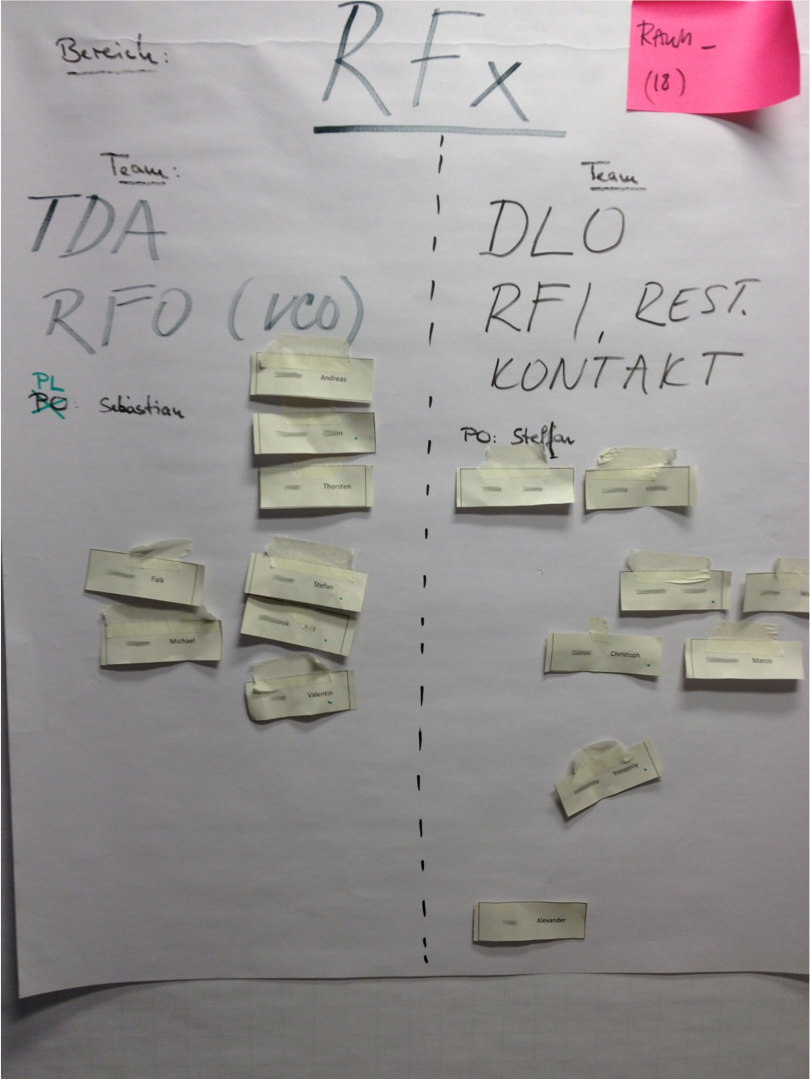 Bereich:
RFx
(18)
Team:
TDA
RFO (VCO)
PL
PO: Sebastian
Andreas
Thorsten
Falk
Michael
Stefan
Valentin
Team
DLO
RFI, REST.
KONTAKT
PO: Steffan
Christoph
Marco
Alexander